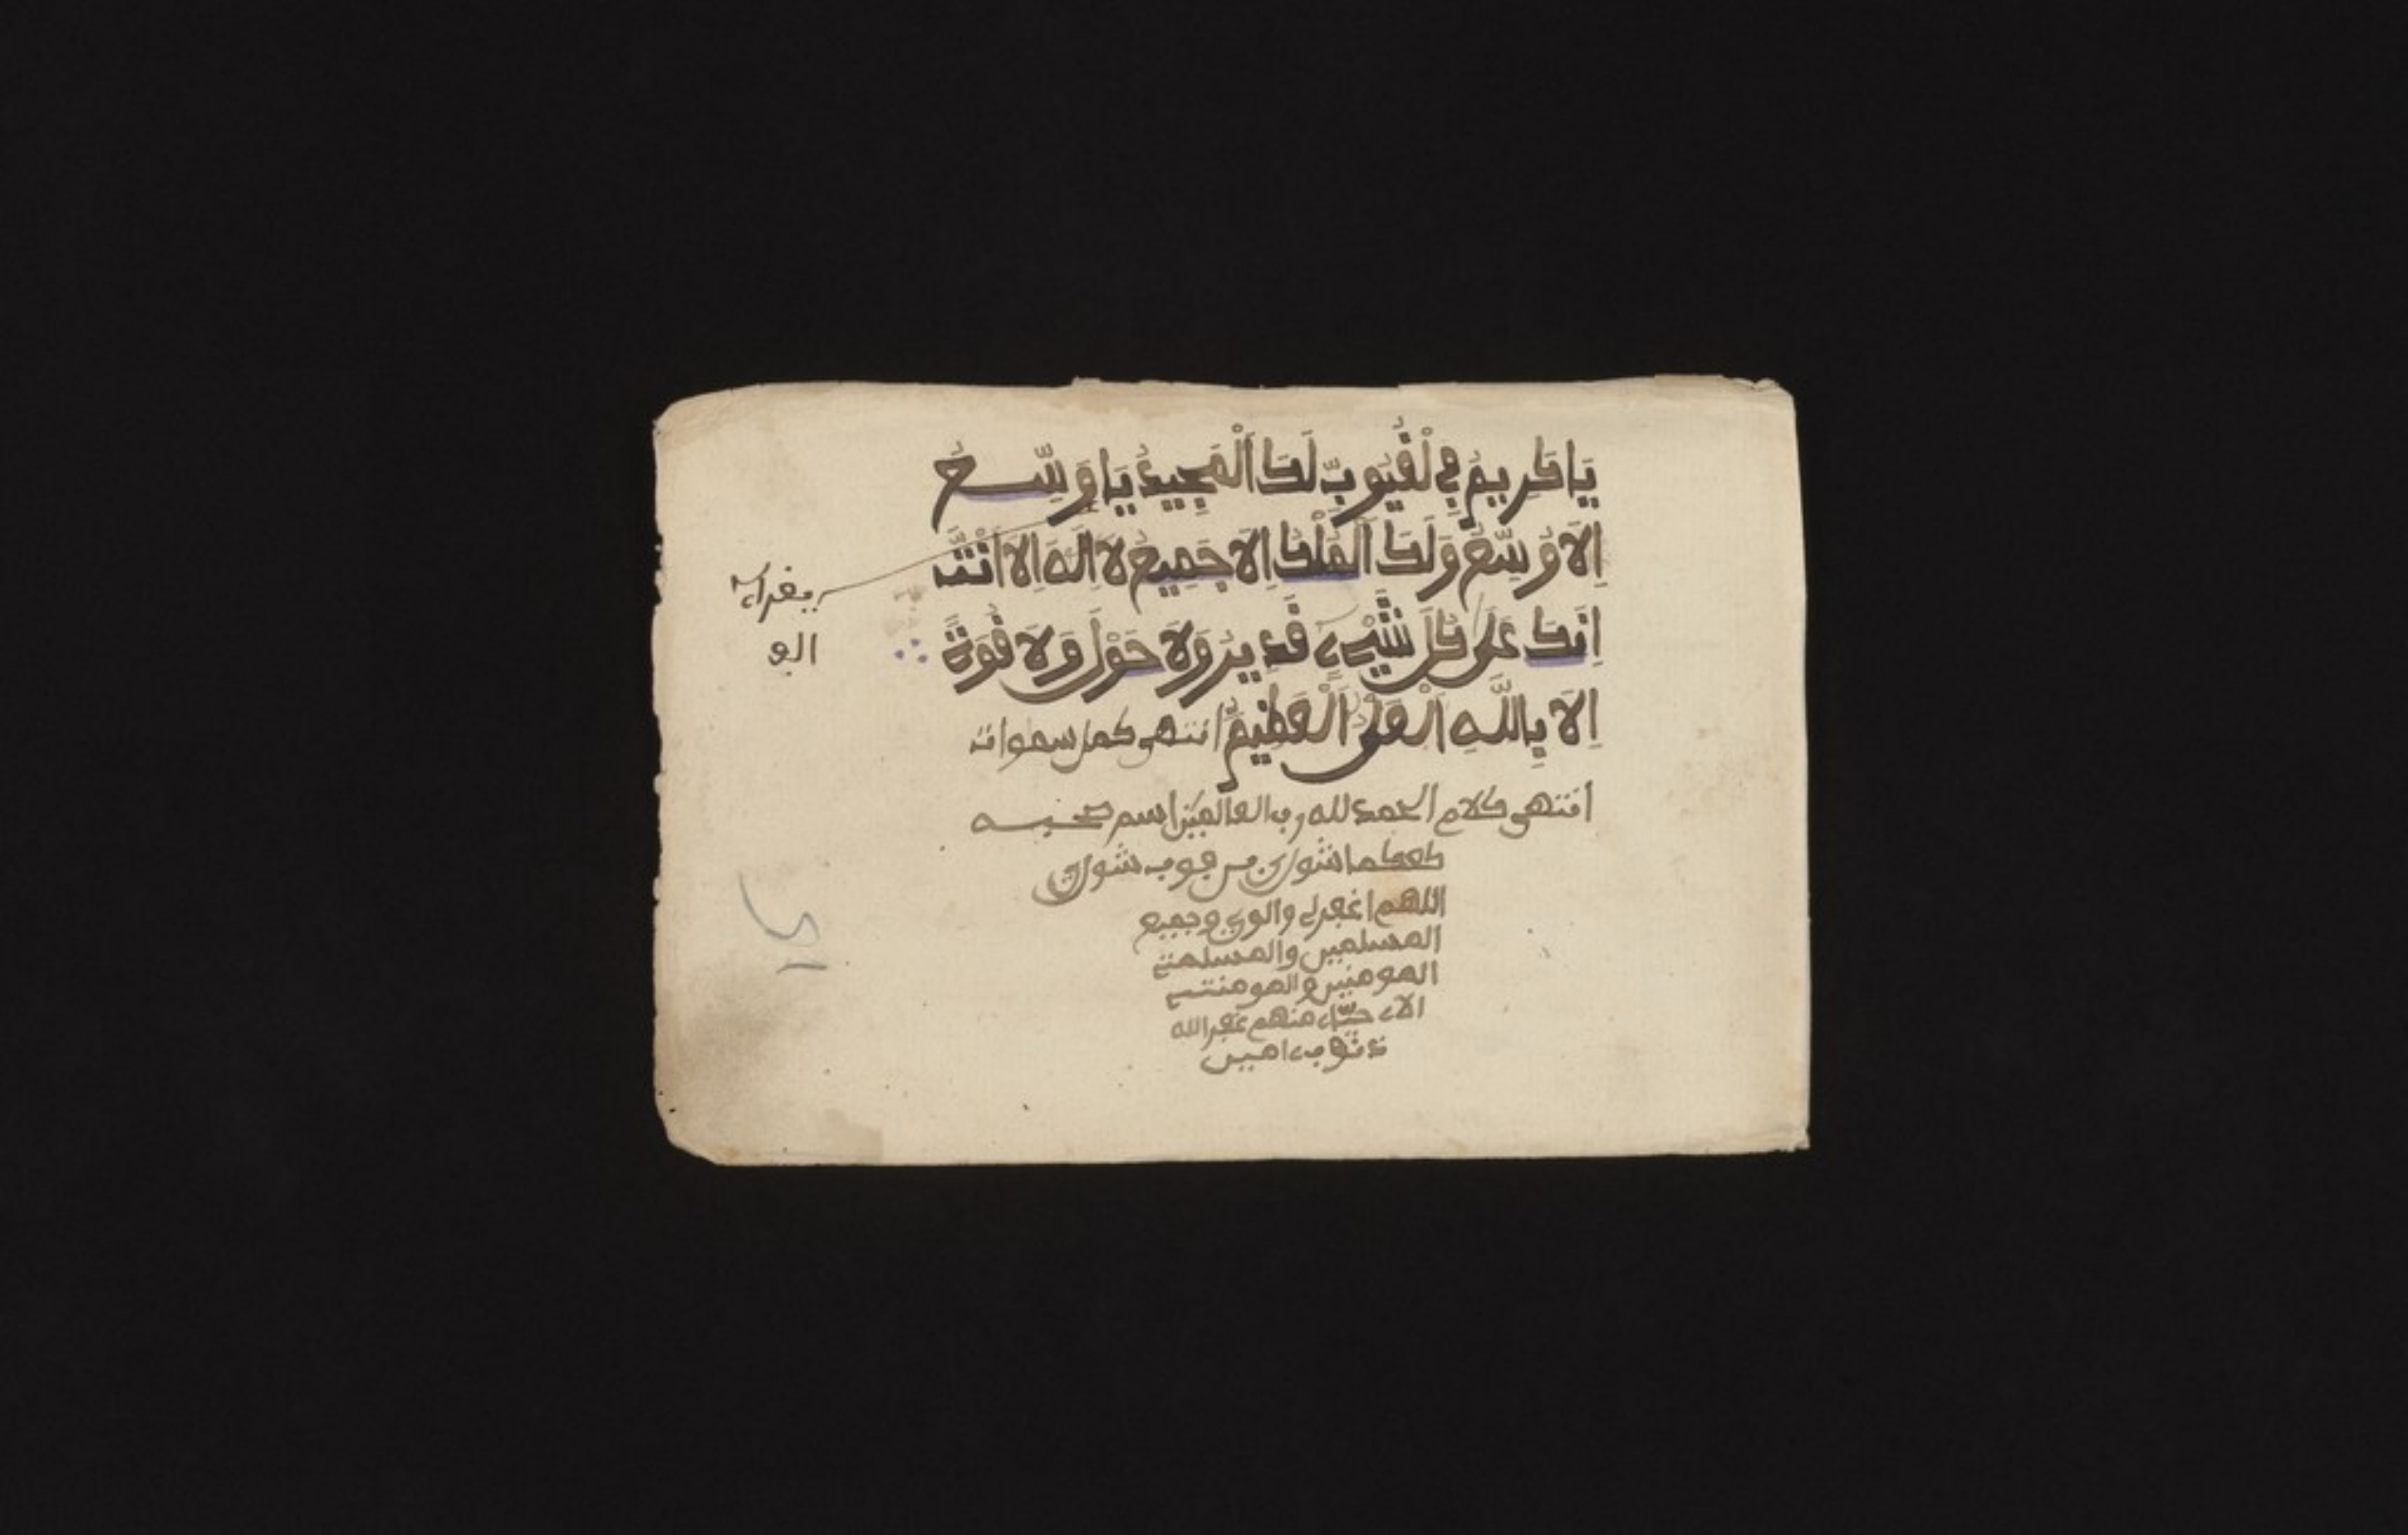 يَا كَرِيمُ فِي لْغُيُوبِّ لَكَ اَلْمَجِيدُ يَا وَسِّعُ
اِلَا وُسِّعُ وَلَكَ اَلْمُلْكُ اِلَا جَمِيعُ لَا اِلَهَ اِلَا اَنْتَ
اِنَكَ عَلَى كُلِ شَيْءٍ قَدِيرُ وَلَا حَوْلَ وَلَا قُوَةً
اِلَا بِاللَّهِ اَلْعَلِي اَلْعَظِيمُ انتهى كمل سموات
انتهى كلام الحمد لله رب العالمين اسم
اللهم اغفر لي والوي وجميع
المسلمين والمسلمت
المومنين والمومنت
الا منهم غفر الله
امين
الو